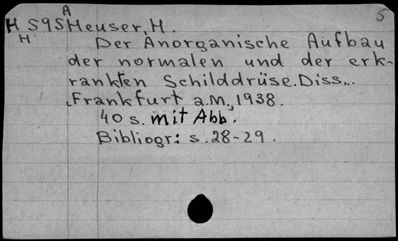 A 5
H S9S Heuser, H.
H
Der Anorganische Aufbau
der normalen und der erk-
rankten Schilddrüse. Diss..
Frankfurt a.M., 1938.
40 s. mit Abb.
Bibliogr: s. 28-29.